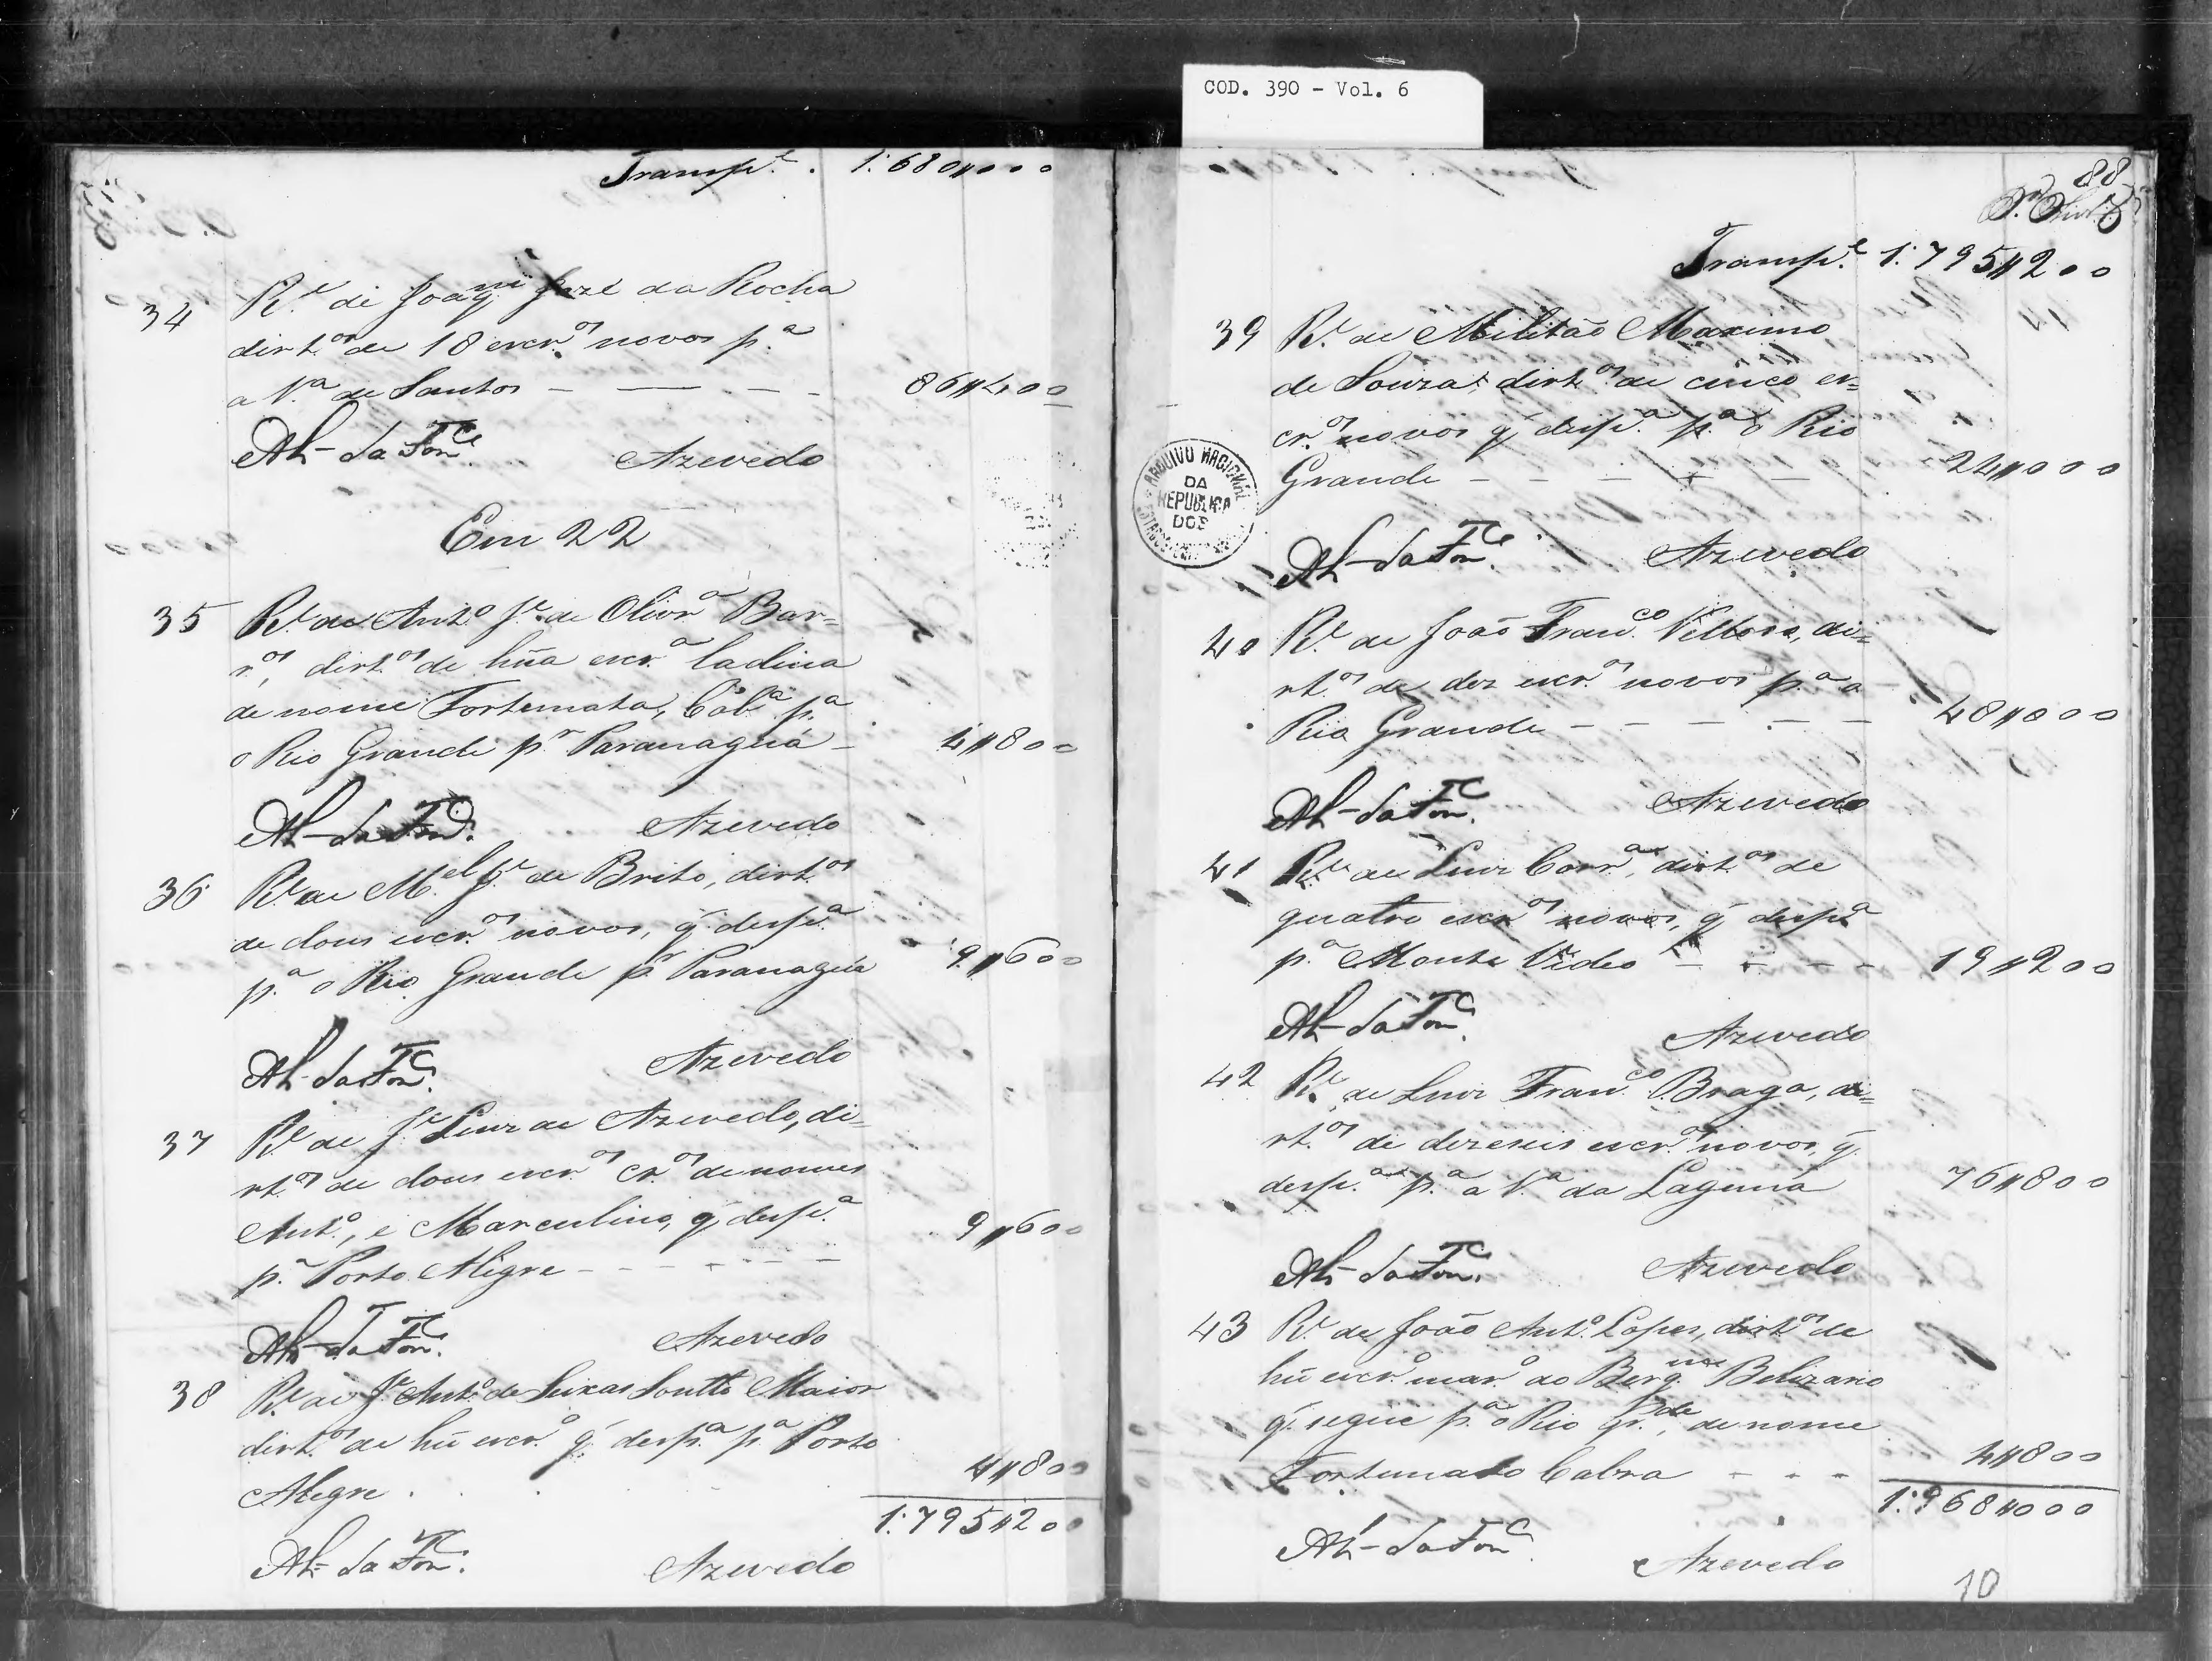 COD. 390 - Vol. 6
Transp.e . 1:680〃000
34 R.e de Joaq.m José da Rocha
dirt.os de 18 escr.os novos p.a
a V.a de Santos - - - - 86〃400
Ah-da Fon.ca Azevedo
Em 22
35 R.e de Ant.o J.e de Olivr.a Bar=
r.os, dirt.os de hũa escr.a ladina
de nome Fortunata, Cab.a p.a
o Rio Grande p.r Paranaguá - 4〃800
Ah-da Fon.ca Azevedo
36 R.e de M.el J.e de Brito, dirt.os
de dous escr.os novos, q' desp.a
p.a o Rio Grande p.r Paranaguá 9〃600
Ah-da Fon.ca Azevedo
37 R.e de J.e Luiz de Azevedo, di=
rt.os de dous escr.os cr.os de nomes
Ant.o, e Marculino, q' desp.a
p.a Porto Alegre - - - - - - 9〃600
Ah-da Fon.ca Azevedo
38 R.e de J.e Ant.o de Seixas Soutto Maior
dirt.os de hũ escr.o q' desp.a p.a Porto
Alegre . . . 4〃800
1:795〃200
Ah-da Fon.ca Azevedo
88
Transp.e 1:795〃200
39 R.e de Militão Maximo
de Souza, dirt.os de cinco es=
cr.os novos q' desp.a p.a o Rio
Grande - - - - - 24〃000
ARQUIVO NACIONAL
DA
REPUBLICA
DOS
Ah-da Fon.ca Azevedo
40 R.e de João Fran.co Velloso, di=
rt.os de dez escr.os novos p.a o
Rio Grande - - - - - 48〃000
Ah-da Fon.ca Azevedo
41 R.e de Luiz Corr.a, dirt.os de
quatro escr.os novos, q' desp.a
p.a Monte Video - - - - 19〃200
Ah-da Fon.ca Azevedo
42 R.e de Luiz Fran.co Braga, di=
rt.os de dezeseis escr.os novos, q'
desp.a p.a a V.a da Laguna 76〃800
Ah-da Fon.ca Azevedo
43 R.e de João Ant.o Lopes, dirt.os de
hũ escr.o mar.o do Berg.m Belizario
q' segue p.a o Rio Gr.de, de nome
Fortunato Cabra - - - 4〃800
1:968〃000
Ah-da Fon.ca Azevedo
10